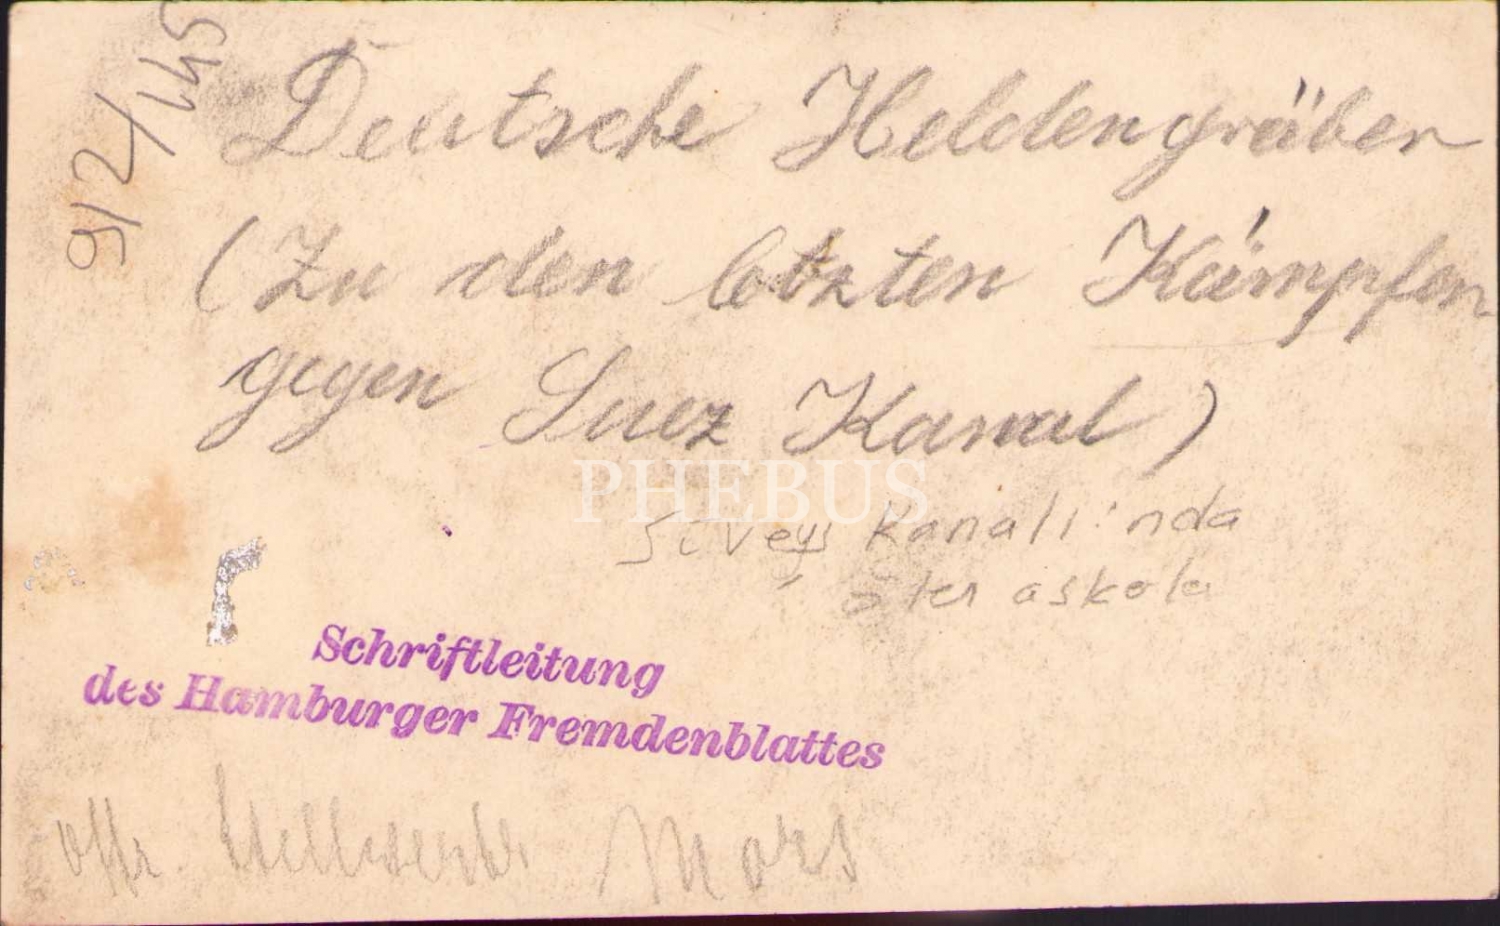 Deutsche Heldengräber
(Zu den letzten Kämpfen
gegen Suez Kanal)
PHEBUS
Süveyş kanalı'nda
Schriftleitung
des Hamburger Fremdenblattes